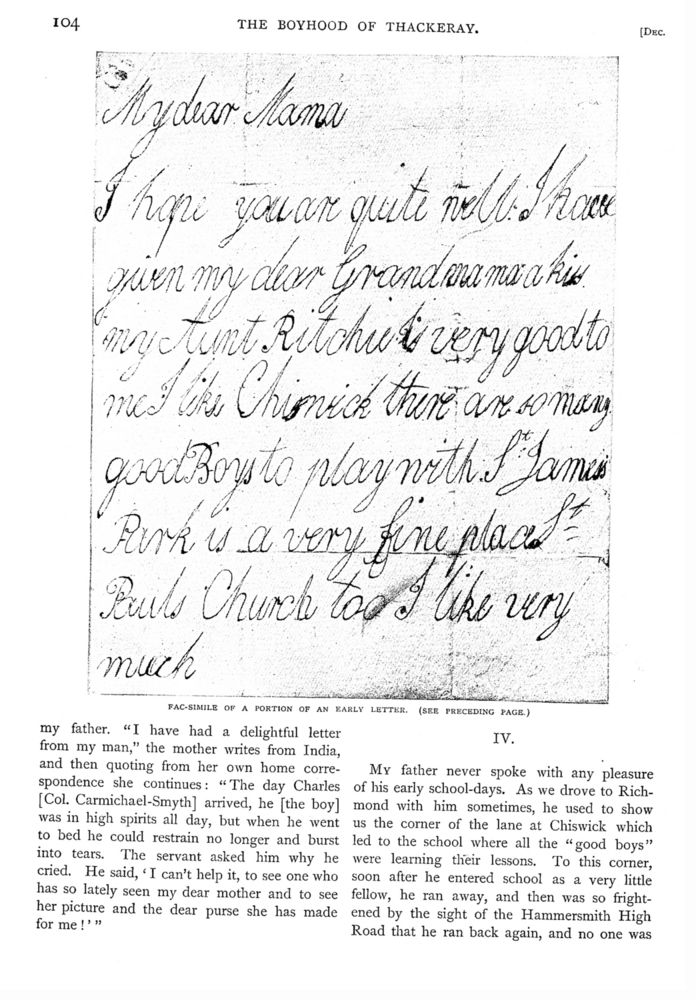 104
THE BOYHOOD OF THACKERAY.
[Dec.
My dear Mama
I hope you are quite well. I have
given my dear Grandmama a kiss
my Aunt Ritchie is very good to
me I like Chiswick there are so many
good Boys to play with. St James's
Park is a very fine place St
Pauls Church too I like very
much
FAC-SIMILE OF A PORTION OF AN EARLY LETTER. (SEE PRECEDING PAGE.)
my father. “I have had a delightful letter
from my man,” the mother writes from India,
and then quoting from her own home corre-
spondence she continues: “The day Charles
[Col. Carmichael-Smyth] arrived, he [the boy]
was in high spirits all day, but when he went
to bed he could restrain no longer and burst
into tears. The servant asked him why he
cried. He said, ‘I can’t help it, to see one who
has so lately seen my dear mother and to see
her picture and the dear purse she has made
for me!’”
IV.
My father never spoke with any pleasure
of his early school-days. As we drove to Rich-
mond with him sometimes, he used to show
us the corner of the lane at Chiswick which
led to the school where all the “good boys”
were learning their lessons. To this corner,
soon after he entered school as a very little
fellow, he ran away, and then was so fright-
ened by the sight of the Hammersmith High
Road that he ran back again, and no one was